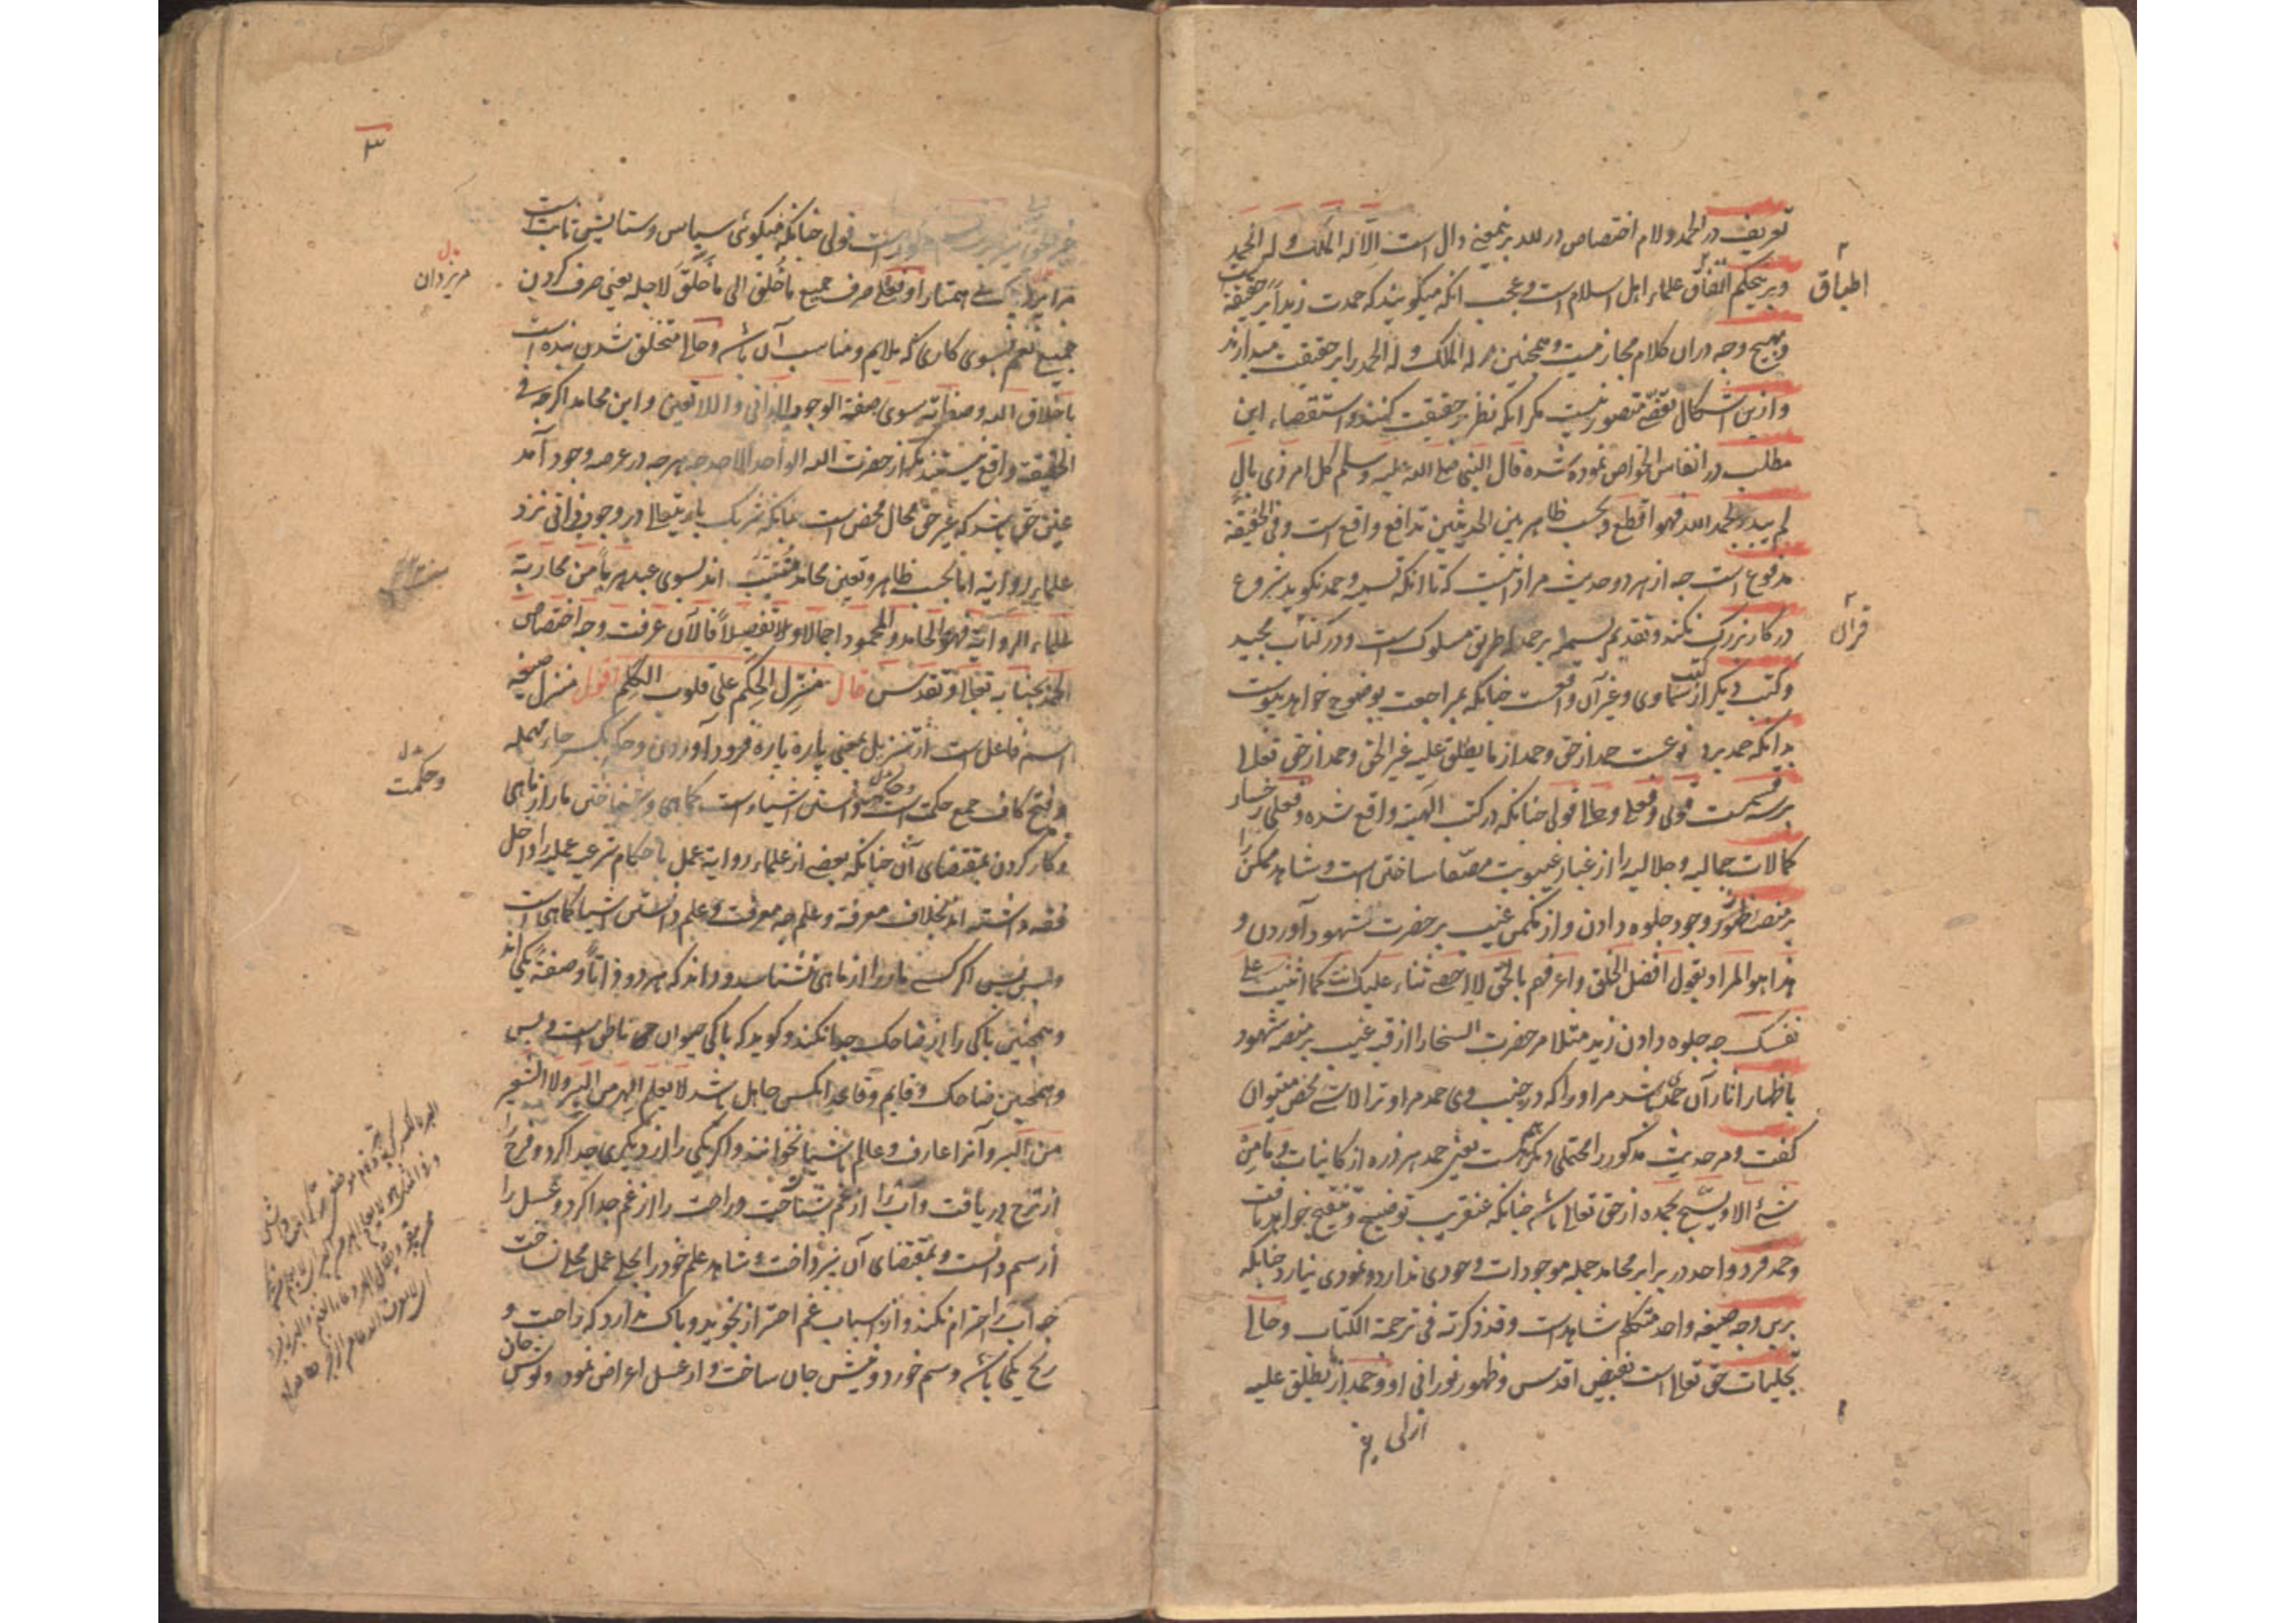 تعریف در الحمد و لام اختصاص در لله بر نمعنی دال است الا له الملک و له الحمد
و برینحکم اتفاق علماء اهل اسلام است و عجب انکه میکویند که حمدت زیداً بر حقیقة
و بهیچ وجه دران کلام مجاز نیست و همچنین مر له الملک و له الحمد را بر حقیقت میدارند
و ازین اشکال تفصّی متصور نیست مکر انکه نظر بر حقیقت کنند و استقصاء این
مطلب در انفاس الخواص نموده شده قال النبی صلی الله علیه و سلم کل امر ذی بال
لم یبدء بحمد الله فهو اقطع و بحسب ظاهر بین الحدیثین تدافع واقع است و فی الحقیقة
مدفوع است چه از هر دو حدیث مراد انیست که تا انکه تسمیه و حمد نکوید شروع
در کار بزرک نکند و تقدیم بسمله بر حمد طریق مسلوک است و در کتاب مجید
و کتب دیکر از کتب سماوی و غیر آن واقعست چنانکه بمراجعت بوضوح خواهد پیوست
بدانکه حمد بر دو نوعست حمد از حق و حمد از ما یطلق علیه غیر الحق و حمد از حق تعالی
بر سه قسمست قولی و فعلی و حالی قولی چنانکه در کتب الهیه واقع شده و فعلی رخسار
کمالات جمالیه و جلالیه را از غبار غیبوبت مصفا ساختن است و شاهد ممکن را
بر منصۀ ظهور و وجود جلوه دادن و از مکمن غیب بر حضرت شهود آوردن و
هذا هو المراد بقول افضل الخلق و اعرفهم بالحق لا احصی ثناء علیک انت کما اثنیت علی
نفسک چه جلوه دادن زید مثلا مر حضرت السخار را از قبه غیب بر منصه شهود
باظهار اثار آن حمدی باشد مر او را که در جنب وی حمد مر او ترا لا شی محض میتوان
کفت و مر حدیث مذکور را محتملی دیکر هست یعنی حمد هر ذره از کاینات و ما من
شئ الا و یسبّح بحمده از حق تعالی باشد چنانکه عنقریب توضیح و تنقیح خواهد یافت
و حمد فرد واحد در برابر محامد جمله موجودات وجودی ندارد و نمودی نیارد چنانکه
برین وجه صیغه واحد متکلم شاهد است و قد ذکرته فی ترجمة الکتاب و حالی
تجلیات حق تعالی است بفیض اقدس و ظهور نورانی او و حمد از ما یطلق علیه
ازلی
اطباق
قران
۳
است قولی چنانکه میکوئی سپاس و ستایش ثابت است
مر ایزد بی همتا را و فعلی صرف جمیع ما خُلِق الی ما خُلِقَ لاجله یعنی صرف کردن
جمیع نعم بسوی کاری که ملایم و مناسب آن باشد و حالی متخلق شدن بنده است
باخلاق الله و صفاته سوی صفة الوجوب الذاتی و اللاتعین و این محامد اکرچه فی
الحقیقة واقع نیستند مکر از حضرت الله الواحد الاحد چه هرچه در عرصه وجود آمد
عین حق باشد که غیر حق محال محض است چنانکه شریک باریتعالی در وجود ذاتی نزد
علماء روایة اما بحسب ظاهر و تعین محامد منتسب اند بسوی عبد هرباً من محاربة
علماء الروایة فهو الحامد و المحمود اجمالا و تفصیلاً فالآن عرفت وجه اختصاص
الحمد بجنابه تعالی و تقدس قال منزل الحِکَم علی قلوب الکلم اقول منزل صیغه
اسم فاعل است از تنزیل بمعنی پاره پاره فرود آوردن و حکم بکسر حاء مهمله
و فتح کاف جمع حکمت است و حکمت دانستن اشیاء است کماهی و شناختن مار از ماهی
و کار کردن بمقتضای آن چنانکه بعضی از علماء روایة عمل باحکام شرعیه عملیه را داخل
فقه داشته اند بخلاف معرفة و علم چه معرفت و علم دانستن اشیا کماهی است
و بس پس اکر کسی مار را از ماهی نشناسد و داند که هر دو ذاتاً و صفةً یکی اند
و همچنین باکی را از ضاحک جدا نکند و کوید که باکی حیوان ناطق است و بس
و همچنین ضاحک و قایم و قاعد انکس جاهل باشد لا یعلم الهر من البر و لا الشعیر
من البر و آنرا عارف و عالم باشیا نخوانند و اکر یکی را از دیکری جدا کرد و فرح را
از ترح دریافت و اب را از غم شناخت و راحت را از غم جدا کرد و عسل را
از سم دانست و بمقتضای آن نپرداخت و شاهد علم خود را بحلی عمل محلی نساخت
چه اب را احترام نکند و از اسباب غم احتراز نجوید و باک ندارد که راحت و
رنج یکی باشد و سم خورد و نیش جان ساخت و از عسل اعراض نمود و نوش جان
مر یزدان
و حکمت